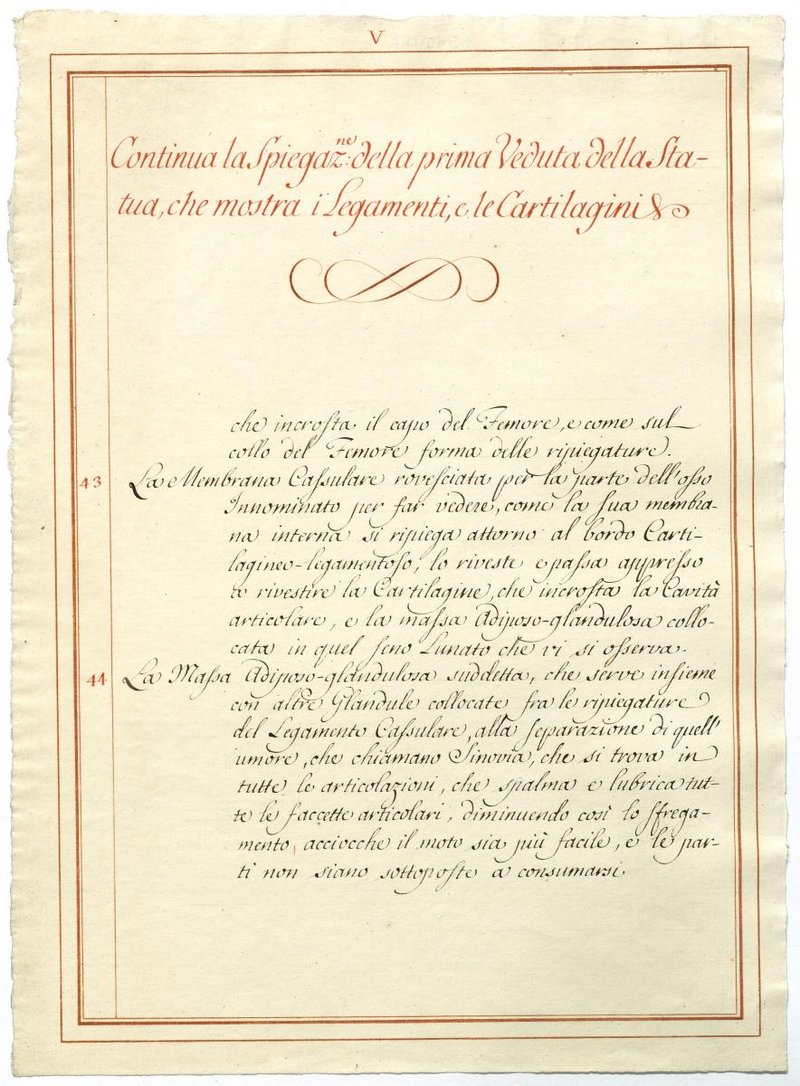 V
Continua la Spiegaz.ne della prima Veduta della Sta-
tua, che mostra i Legamenti, e le Cartilagini &
che incrosta il capo del Femore, e come sul
collo del Femore forma delle ripiegature.
43 La Membrana Cassulare rovesciata per la parte dell'osso
Innominato per far vedere, come la sua membra-
na interna si ripiega attorno al bordo Carti-
lagineo-legamentoso, lo riveste e passa appresso
a rivestire la Cartilagine, che incrosta la Cavità
articolare, e la massa Adiposo-glandulosa collo-
cata in quel seno Lunato che vi si osserva.
44 La Massa Adiposo-glandulosa suddetta, che serve insieme
con altre Glandule collocate fra le ripiegature
del Legamento Cassulare, alla separazione di quell'
umore, che chiamano Sinovia, che si trova in
tutte le articolazioni, che spalma e lubrica tut-
te le faccette articolari, diminuendo così lo sfrega-
mento, acciocche il moto sia più facile, e le par-
ti non siano sottoposte a consumarsi.